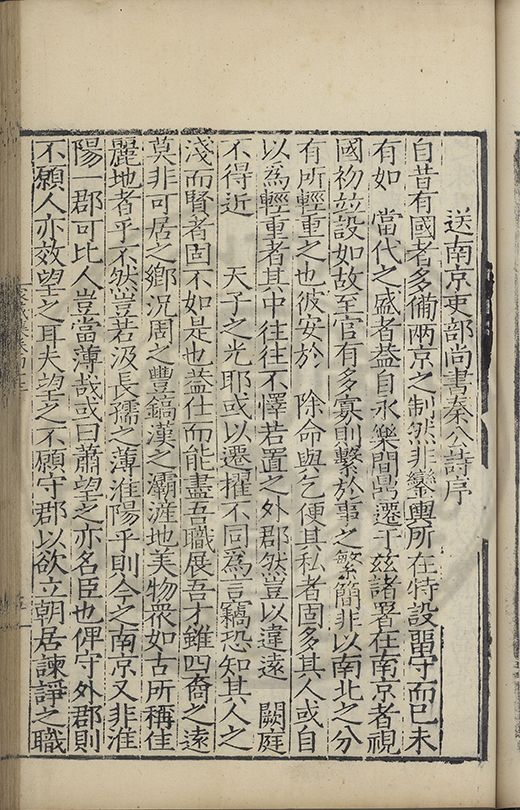 送南京吏部尚書秦公詩序
自昔有國者多備兩京之制然非鑾輿所在特設畱守而已未
有如 當代之盛者葢自永樂間鼎遷于兹諸署在南京者視
國初竝設如故至官有多寡則繫於事之繁簡非以南北之分
有所輕重之也彼安於 除命與乞便其私者固多其人或自
以爲輕重者其中往往不懌若置之外郡然豈以違遠 闕庭
不得近 天子之光耶或以遷擢不同爲言竊恐知其人之
淺而賢者固不如是也葢仕而能盡吾職展吾才雖四裔之遠
莫非可居之鄉况周之豐鎬漢之灞滻地美物衆如古所稱佳
麗地者乎不然豈若汲長孺之薄淮陽乎則今之南京又非淮
陽一郡可比人豈當薄哉或曰蕭望之亦名臣也俾守外郡則
不願人亦效望之耳夫望之不願守郡以欲立朝居諫諍之職